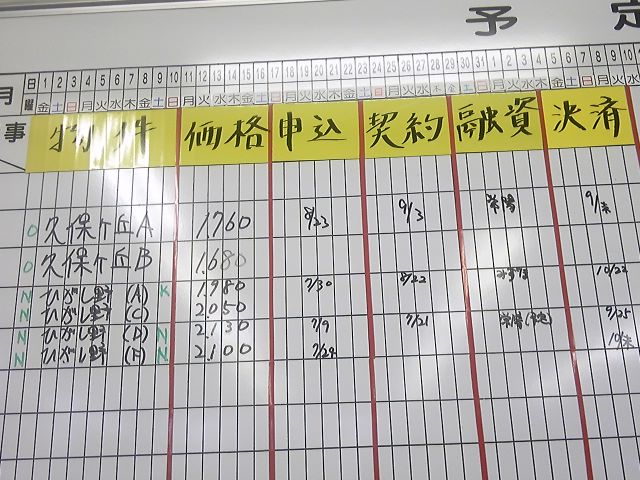 予定
月 日 1 2 3 4 5 6 7 8 9 10 11 12 13 14 15 16 17 18 19 20 21 22 23 24 25 26 27 28 29 30 31 1 2 3 4 5 6 7 8 9 10
曜 金 土 日 月 火 水 木 金 土 日 月 火 水 木 金 土 日 月 火 水 木 金 土 日 月 火 水 木 金 土 日 月 火 水 木 金 土 日 月 火 水
事 物件 価格 申込 契約 融資 決済
O 久保ヶ丘A 1.760 8/23 9/3 常陽 9/末
O 久保ヶ丘B 1.680
N ひがし野 (A) K 1.980 7/30 8/22 みずほ 10/22
N ひがし野 (C) 2.050
N ひがし野 (D) N 2.130 7/9 7/21 常陽 9/25
N ひがし野 (F) N 2.100 7/24 10/末